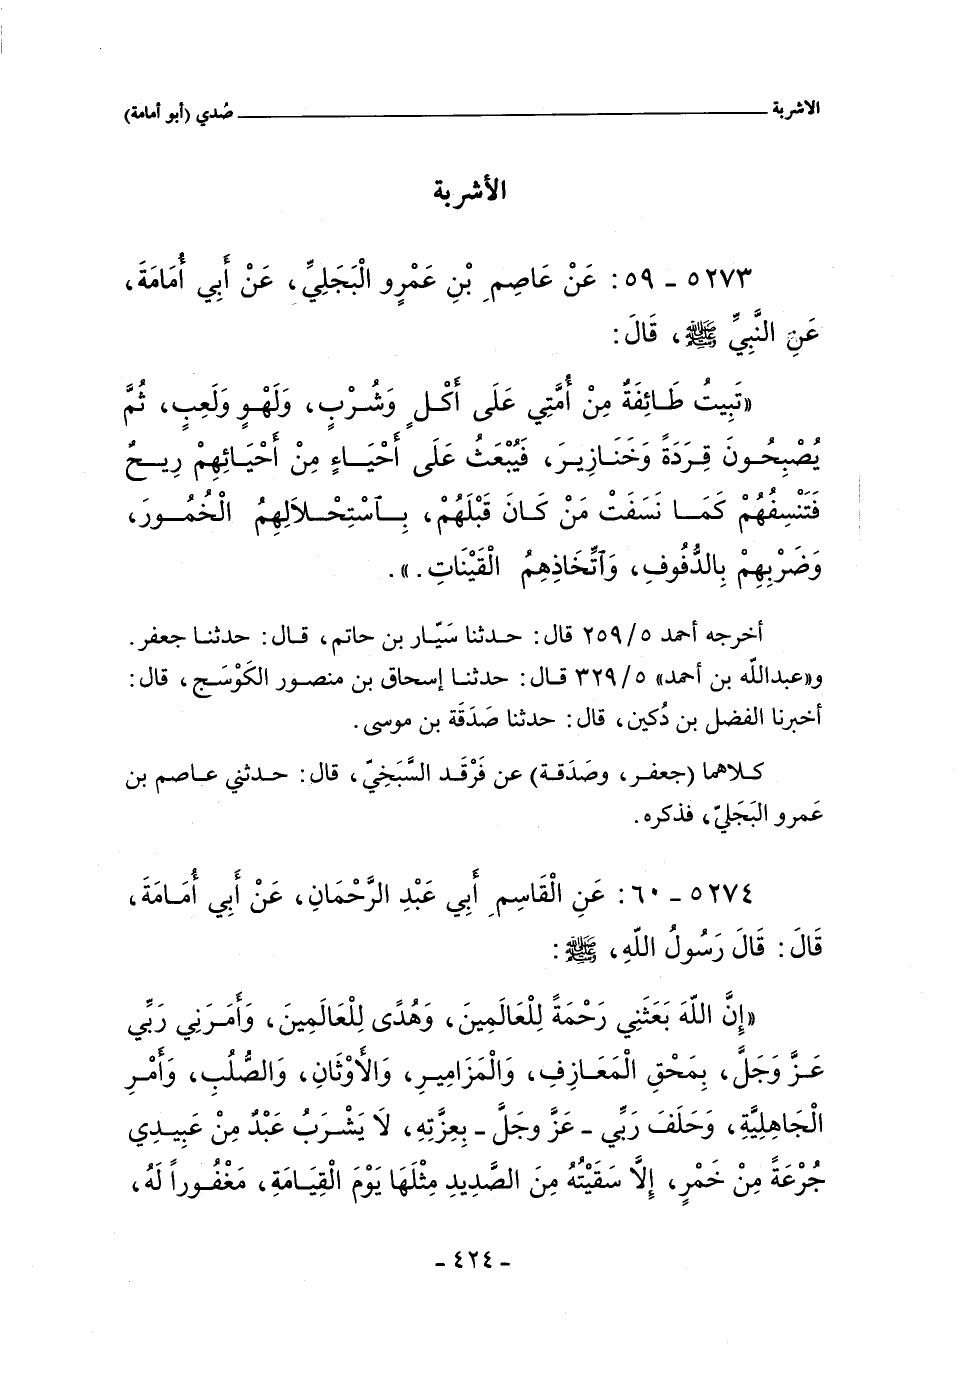 الأشربة ــــــــــ صُدي (أبو أمامة)
الأشربة
٥٢٧٣ ـ ٥٩ : عَنْ عَاصِمِ بْنِ عَمْرٍو الْبَجَلِيِّ، عَنْ أَبِي أُمَامَةَ،
عَنِ النَّبِيِّ ﷺ، قَالَ :
«تَبِيتُ طَائِفَةٌ مِنْ أُمَّتِي عَلَى أَكْلٍ وَشُرْبٍ، وَلَهْوٍ وَلَعِبٍ، ثُمَّ
يُصْبِحُونَ قِرَدَةً وَخَنَازِيرَ، فَيُبْعَثُ عَلَى أَحْيَاءٍ مِنْ أَحْيَائِهِمْ رِيحٌ
فَتَنْسِفُهُمْ كَمَا نَسَفَتْ مَنْ كَانَ قَبْلَهُمْ، بِٱسْتِحْلاَلِهِمُ الْخُمُورَ،
وَضَرْبِهِمْ بِالدُّفُوفِ، وَٱتِّخَاذِهِمُ الْقَيْنَاتِ . » .
أخرجه أحمد ٢٥٩/٥ قال : حدثنا سَيَّار بن حاتم، قال : حدثنا جعفر .
و«عبدالله بن أحمد» ٣٢٩/٥ قال : حدثنا إسحاق بن منصور الكَوْسَج، قال :
أخبرنا الفضل بن دُكين، قال : حدثنا صَدَقَة بن موسى .
كلاهما (جعفر، وصَدَقة) عن فَرْقَد السَّبَخِيّ، قال : حدثني عاصم بن
عَمرو البَجَليّ، فذكره .
٥٢٧٤ ـ ٦٠ : عَنِ الْقَاسِمِ أَبِي عَبْدِ الرَّحْمَانِ، عَنْ أَبِي أُمَامَةَ،
قَالَ : قَالَ رَسُولُ اللّهِ، ﷺ :
«إِنَّ اللّهَ بَعَثَنِي رَحْمَةً لِلْعَالَمِينَ، وَهُدًى لِلْعَالَمِينَ، وَأَمَرَنِي رَبِّي
عَزَّ وَجَلَّ، بِمَحْقِ الْمَعَازِفِ، وَالْمَزَامِيرِ، وَالأَوْثَانِ، وَالصُّلُبِ، وَأَمْرِ
الْجَاهِلِيَّةِ، وَحَلَفَ رَبِّي ـ عَزَّ وجَلَّ ـ بِعِزَّتِهِ، لاَ يَشْرَبُ عَبْدٌ مِنْ عَبِيدِي
جُرْعَةً مِنْ خَمْرٍ، إِلاَّ سَقَيْتُهُ مِنَ الصَّدِيدِ مِثْلَهَا يَوْمَ الْقِيَامَةِ، مَغْفُوراً لَهُ،
ـ ٤٢٤ ـ